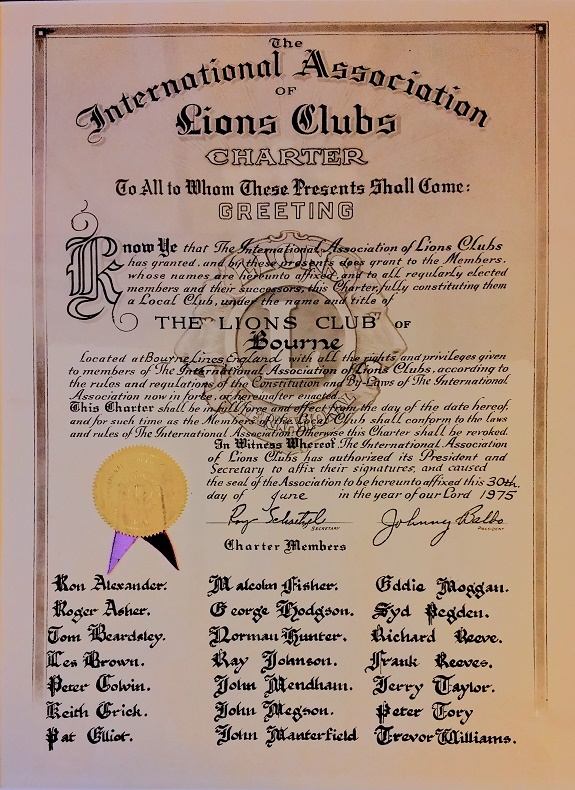 The
International Association
OF
Lions Clubs
CHARTER
To All to Whom These Presents Shall Come:
GREETING
Know Ye that The International Association of Lions Clubs
has granted, and by these presents does grant to the Members,
whose names are hereunto affixed, and to all regularly elected
members and their successors, this Charter, fully constituting them
a Local Club, under the name and title of
THE LIONS CLUB OF
Bourne
Located at Bourne Lincs England with all the rights and privileges given
to members of The International Association of Lions Clubs, according to
the rules and regulations of the Constitution and By-Laws of The International
Association now in force, or hereafter enacted.
This Charter shall be in full force and effect from the day of the date hereof,
and for such time as the Members of the Local Club shall conform to the laws
and rules of The International Association: Otherwise this Charter shall be revoked.
In Witness Whereof, The International Association
of Lions Clubs has authorized its President and
Secretary to affix their signatures, and caused
the seal of the Association to be hereunto affixed this 30th
day of June in the year of our Lord 1975
Roy Schaetzel Johnny Balbo
SECRETARY PRESIDENT
Charter Members
Ron Alexander. Malcolm Fisher. Eddie Moggan.
Roger Asher. George Hodgson. Syd Pegden.
Tom Beardsley. Norman Hunter. Richard Reeve.
Les Brown. Ray Johnson. Frank Reeves.
Peter Colvin. John Mendham. Jerry Taylor.
Keith Crick. John Megson. Peter Tory
Pat Elliot. John Manterfield Trevor Williams.